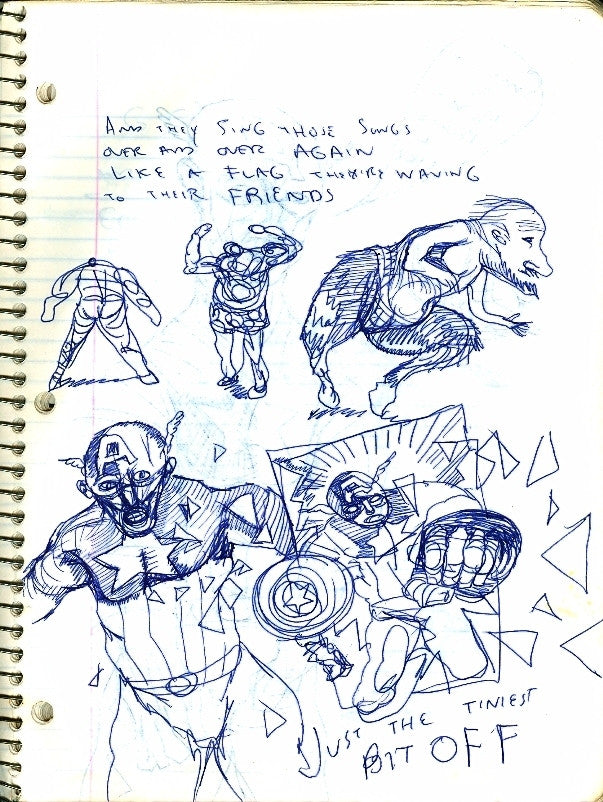 AND THEY SING THOSE SONGS
OVER AND OVER AGAIN
LIKE A FLAG THEY'RE WAVING
TO THEIR FRIENDS
A
JUST THE TINIEST
BIT OFF